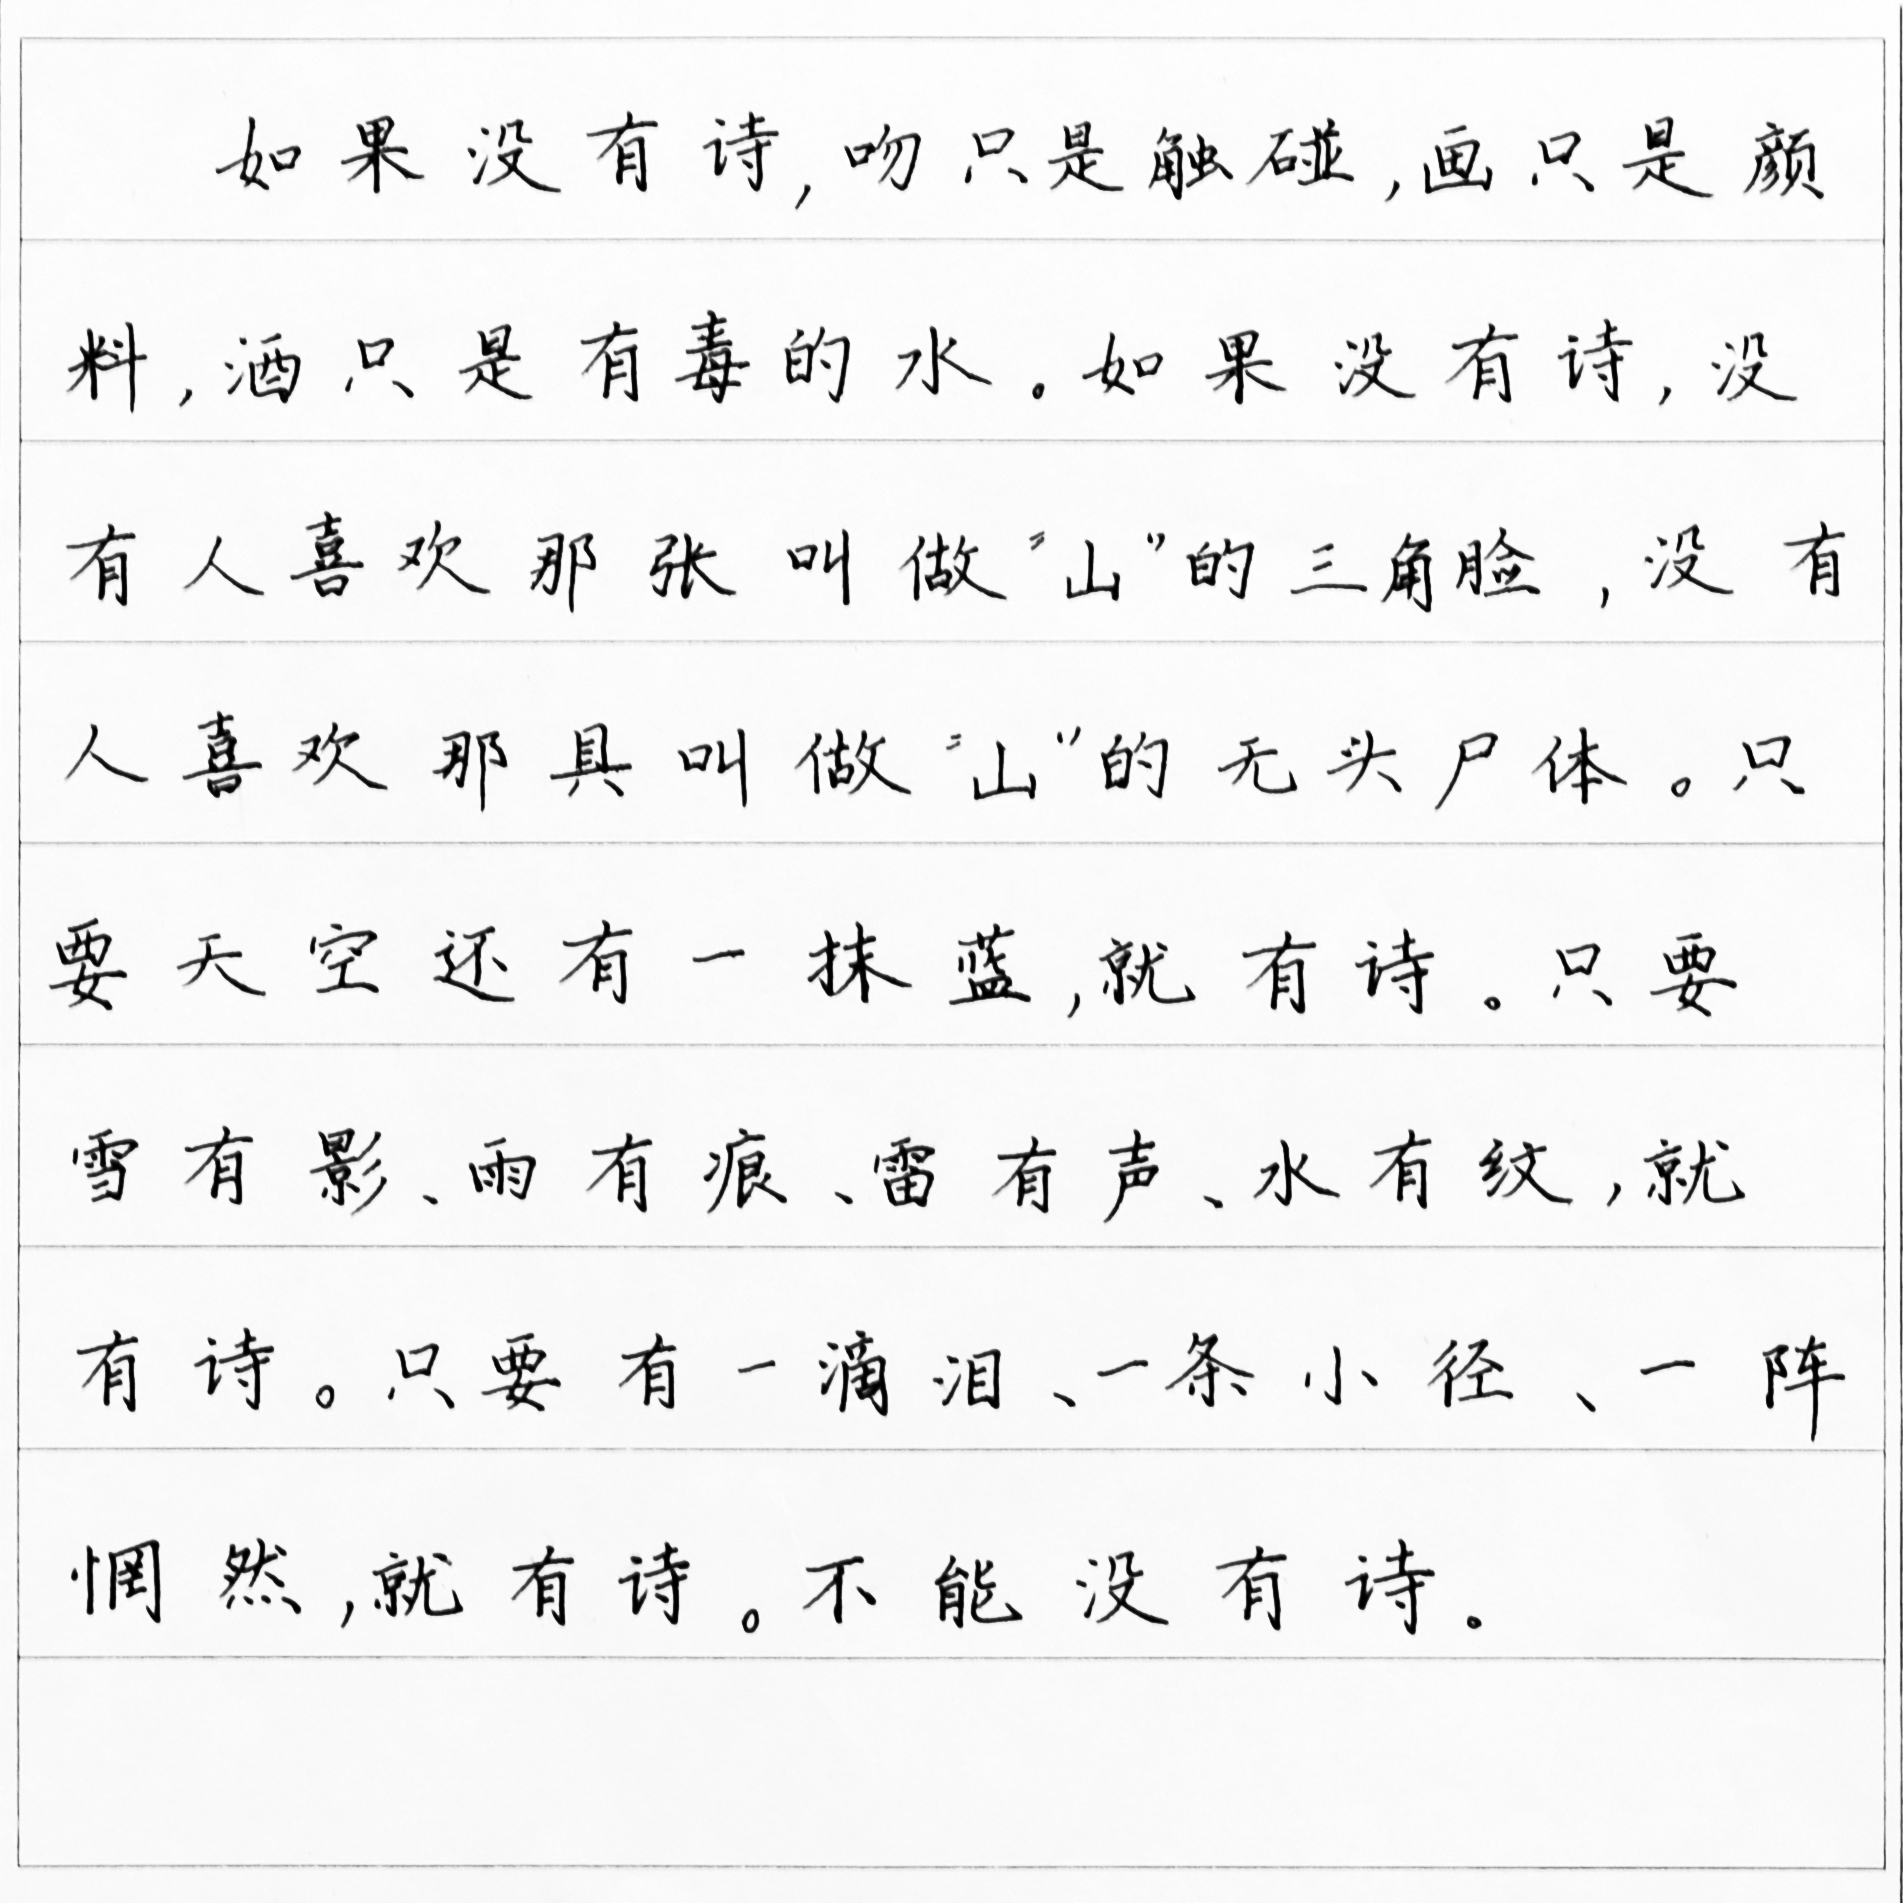 如果没有诗,吻只是触碰,画只是颜
料,酒只是有毒的水。如果没有诗,没
有人喜欢那张叫做“山”的三角脸,没有
人喜欢那具叫做“山”的无头尸体。只
要天空还有一抹蓝,就有诗。只要
雪有影、雨有痕、雷有声、水有纹,就
有诗。只要有一滴泪、一条小径、一阵
惘然,就有诗。不能没有诗。